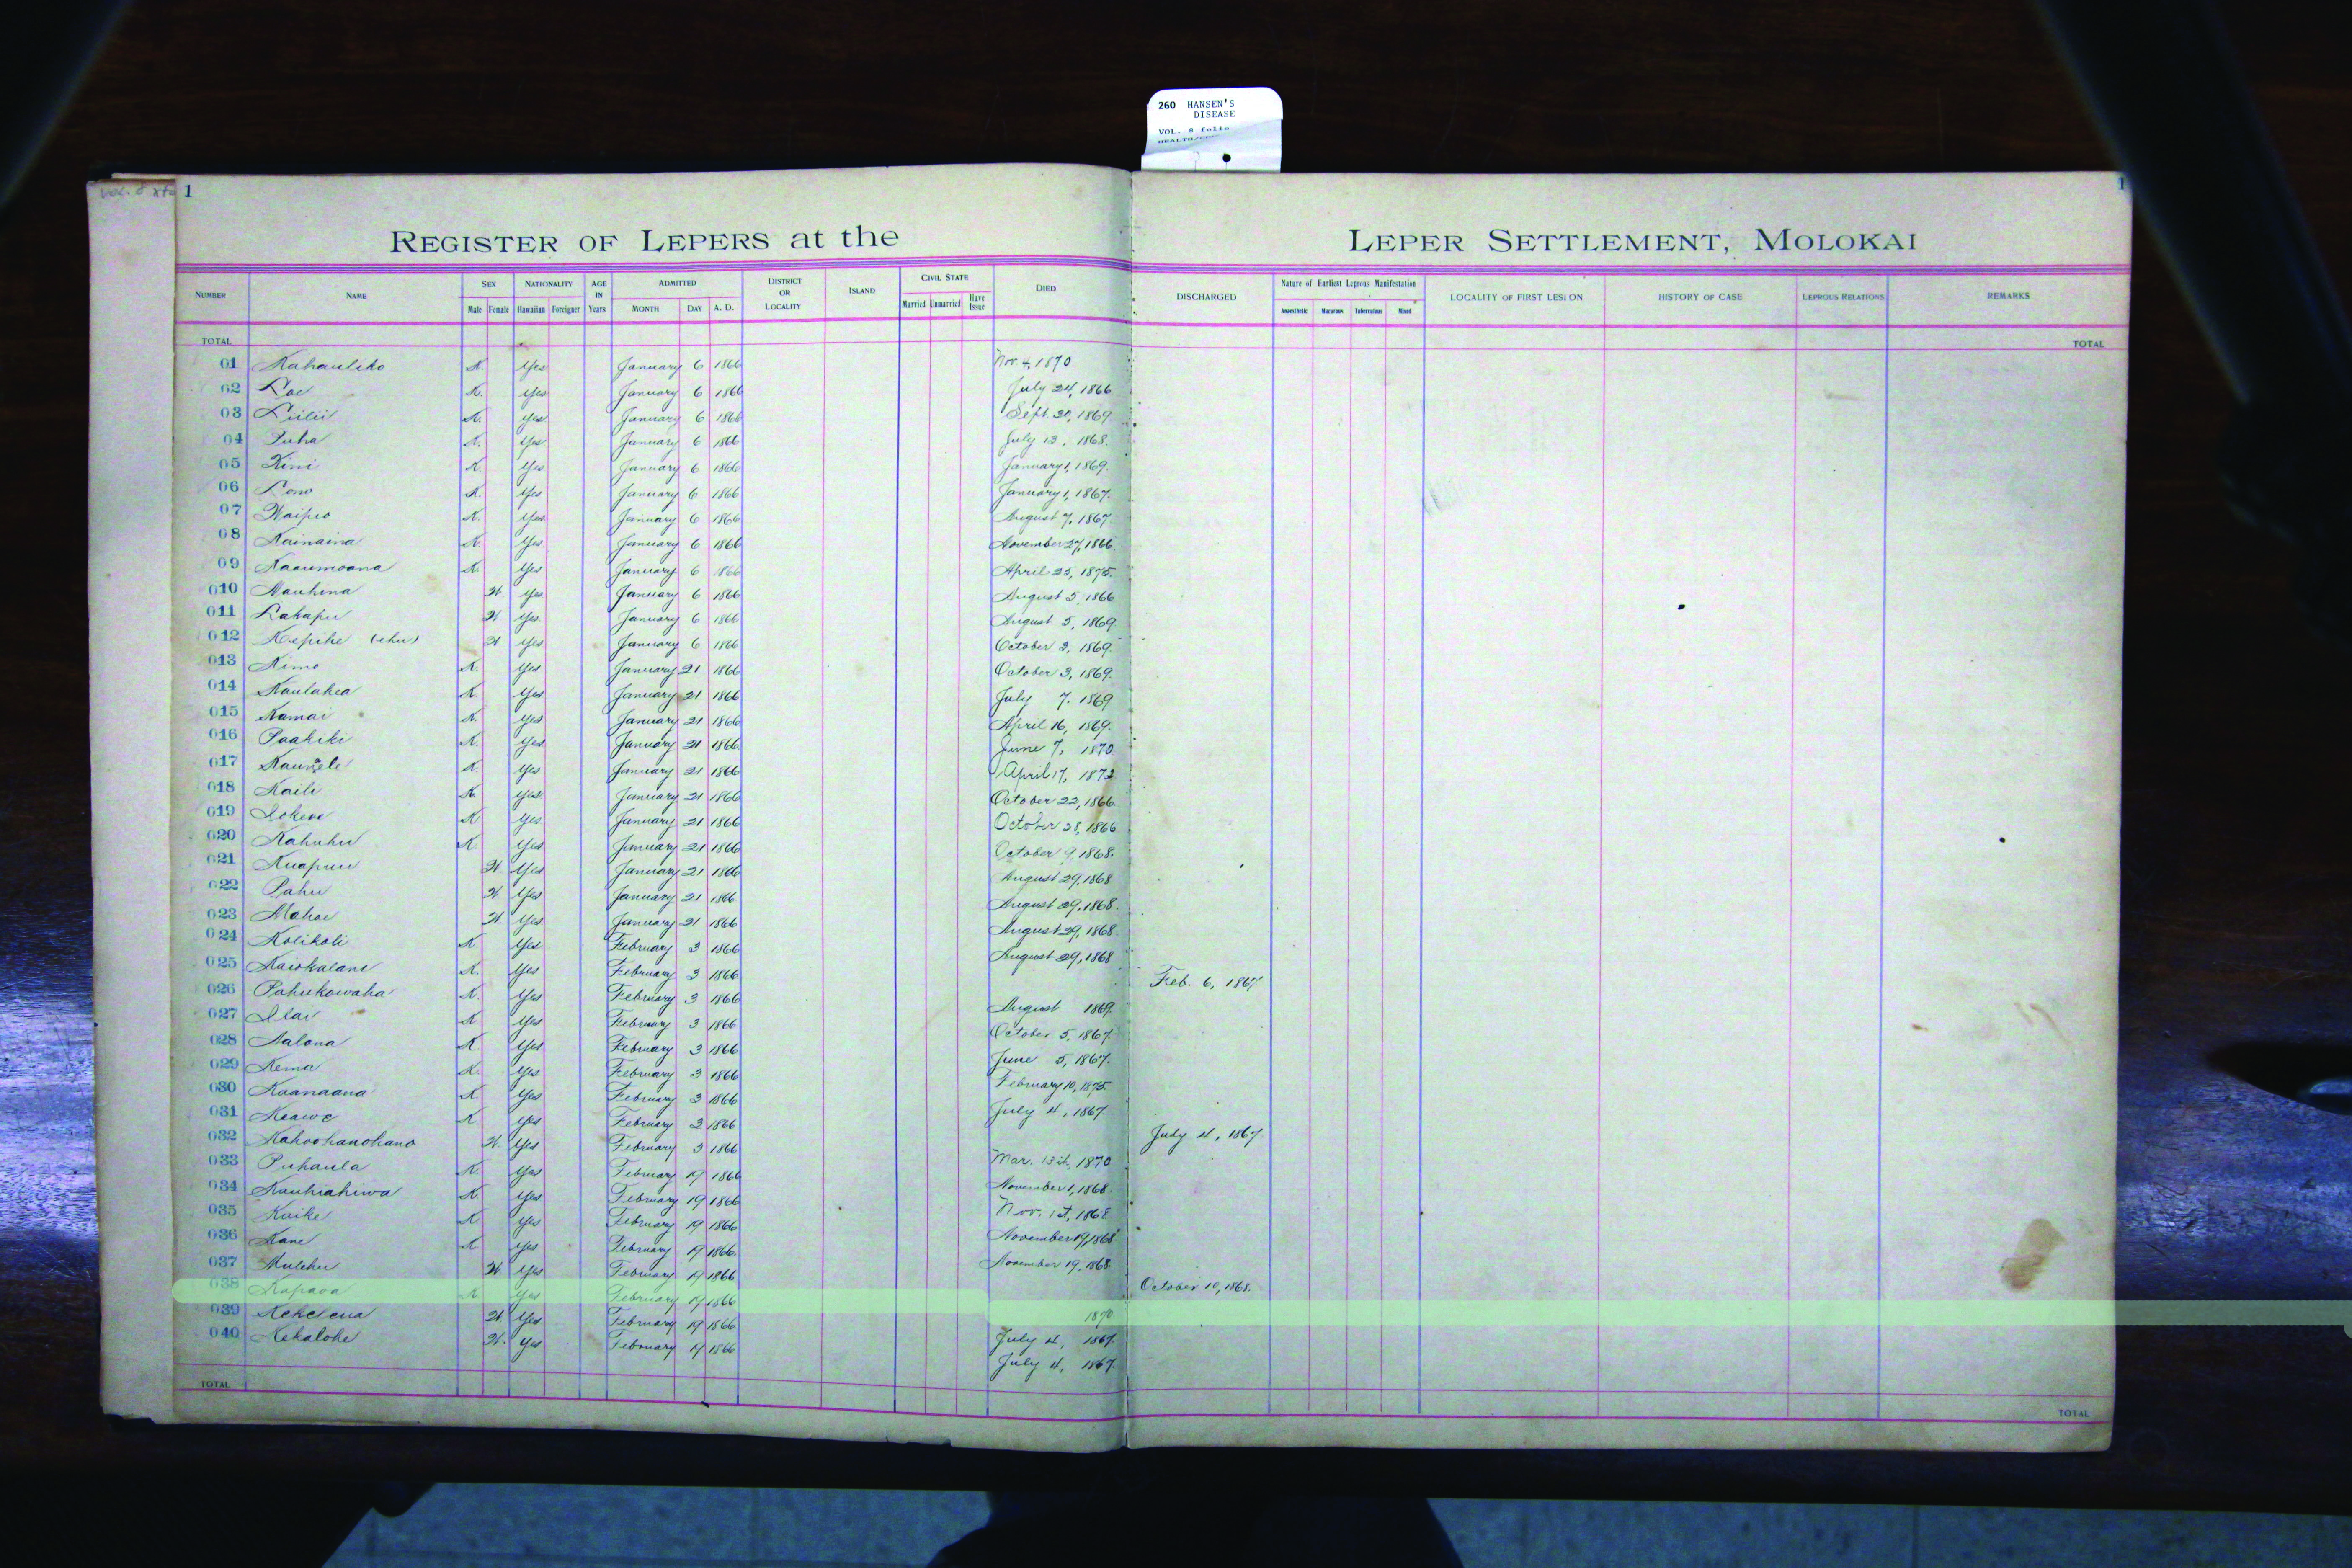 260 HANSEN'S
DISEASE
VOL. 8 folio
1
1
REGISTER OF LEPERS at the LEPER SETTLEMENT, MOLOKAI
NUMBER NAME SEX NATIONALITY AGE IN Years ADMITTED DISTRICT OR LOCALITY ISLAND CIVIL STATE DIED DISCHARGED Nature of Earliest Leprous Manifestation LOCALITY OF FIRST LESION HISTORY OF CASE LEPROUS RELATIONS REMARKS
Male Female Hawaiian Foreigner MONTH DAY A. D. Married Unmarried Have Issue Anaesthetic Macurous Tuberculous Mixed
TOTAL TOTAL
01 Kahauliko K. Yes January 6 1866 Nov. 4, 1870
02 Loe K. Yes January 6 1866 July 24, 1866
03 Liilii K. Yes January 6 1866 Sept. 20, 1869
04 Puha K. Yes January 6 1866 July 13, 1868.
05 Kini K. Yes January 6 1866 January 1, 1869.
06 Lono K. Yes January 6 1866 January 1, 1867.
07 Waipio K. Yes January 6 1866 August 7, 1867
08 Kainaina K. Yes January 6 1866 November 27, 1866
09 Kaaumoana K. Yes January 6 1866 April 25, 1875.
010 Mauhina W Yes January 6 1866 August 5, 1866
011 Lakapu W Yes January 6 1866 August 5, 1869
012 Kepihe (ehu) W Yes January 6 1866 October 3, 1869.
013 Kimo K. Yes January 21 1866 October 3, 1869.
014 Kaulahea K Yes January 21 1866 July 7, 1869
015 Kamai K. Yes January 21 1866 April 16, 1869.
016 Paakiki K. Yes January 21 1866 June 7, 1870
017 K. Yes January 21 1866 April 17, 1872
018 Kaili K. Yes January 21 1866 October 22, 1866
019 Iokewe K Yes January 21 1866 October 28, 1866
020 Kahuhu K. Yes January 21 1866 October 9, 1868.
021 Kuapuu W. Yes January 21 1866 August 29, 1868
022 Pahu W Yes January 21 1866 August 29, 1868.
023 Mahoe W Yes January 21 1866 August 29, 1868.
024 Kolikoli K Yes February 3 1866 August 29, 1868
025 Kaiokalani K. Yes February 3 1866 Feb. 6, 1867
026 Pahukowaha K. Yes February 3 1866 August 1869.
027 Ilai K Yes February 3 1866 October 5, 1867.
028 Aalona K Yes February 3 1866 June 5, 1867.
029 Kema K. Yes February 3 1866 February 10, 1875.
030 Kaanaana K Yes February 3 1866 July 4, 1867.
031 Keawe K. Yes February 3 1866 July 4, 1867
032 Kahoohanohano W. Yes February 3 1866 Mar. 13th, 1870
033 Puhaula K. Yes February 19 1866 November 1, 1868.
034 Kauhiahiwa K Yes February 19 1866 Nov. 1st, 1868
035 Kuike K Yes February 19 1866 November 19, 1868
036 Kane K Yes February 19 1866 November 19, 1868
037 Mulehu W. Yes February 19 1866 October 10, 1868.
038 Kapaoa K Yes February 19 1866 1870
039 Kekelena W. Yes February 19 1866 July 4, 1867.
040 Kekalohe W. Yes February 19 1866 July 4, 1867.
TOTAL TOTAL